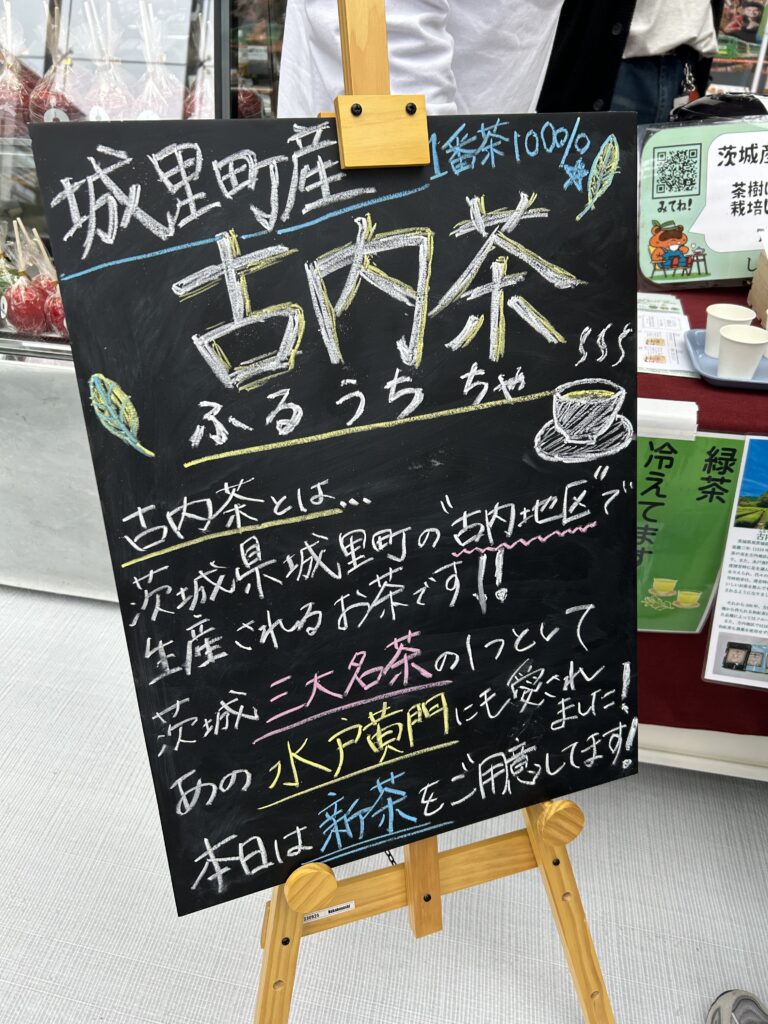 城里町産
1番茶100%
古内茶
ふるうちちゃ
古内茶とは…
茨城県城里町の"古内地区"で
生産されるお茶です!!
茨城 三大名茶の1つとして
あの 水戸黄門にも愛されました!
本日は 新茶をご用意してます!
みてね!
茨城
茶樹
栽培
緑茶
冷えてます